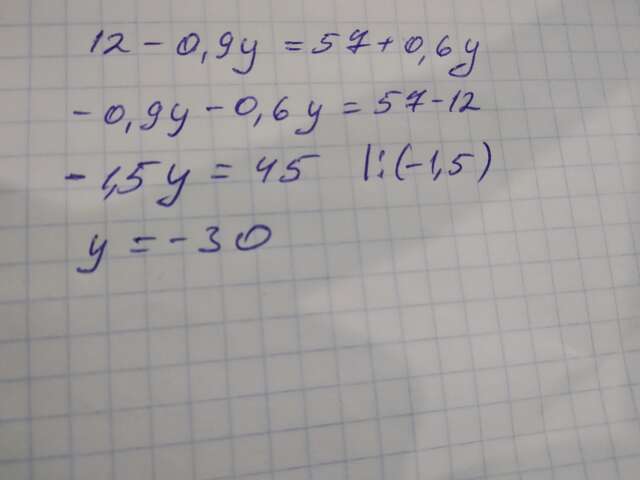 12 - 0,9y = 57 + 0,6y
- 0,9y - 0,6y = 57 - 12
- 1,5y = 45 |:(-1,5)
y = - 30